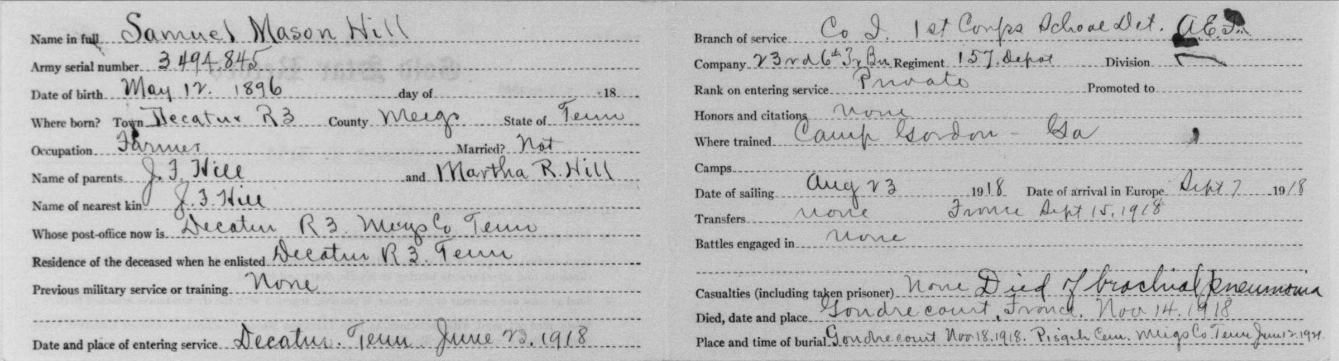 Name in full Samuel Mason Hill
Army serial number 3494845
Date of birth May 12. 1896 day of 18
Where born? Town Decatur R3 County Meigs State of Tenn
Occupation Farmer Married? Not
Name of parents J. F. Hill and Martha R. Hill
Name of nearest kin J. F. Hill
Whose post-office now is Decatur R 3. Meigs Co Tenn
Residence of the deceased when he enlisted Decatur R 3. Tenn
Previous military service or training None
Date and place of entering service Decatur. Tenn June 23, 1918
Branch of service Co I. 1st Corps School Det. A.E.F.
Company 23rd 6th Tr Bn Regiment 157. Depot Division
Rank on entering service Private Promoted to
Honors and citations none
Where trained Camp Gordon - Ga
Camps
Date of sailing Aug 23 1918 Date of arrival in Europe Sept 7 1918
Transfers none France Sept 15, 1918
Battles engaged in none
Casualties (including taken prisoner) None Died of brachial pneumonia
Died, date and place Gondrecourt, France. Nov 14. 1918
Place and time of burial Gondrecourt Nov 18. 1918. Pisgah Cem. Meigs Co. Tenn